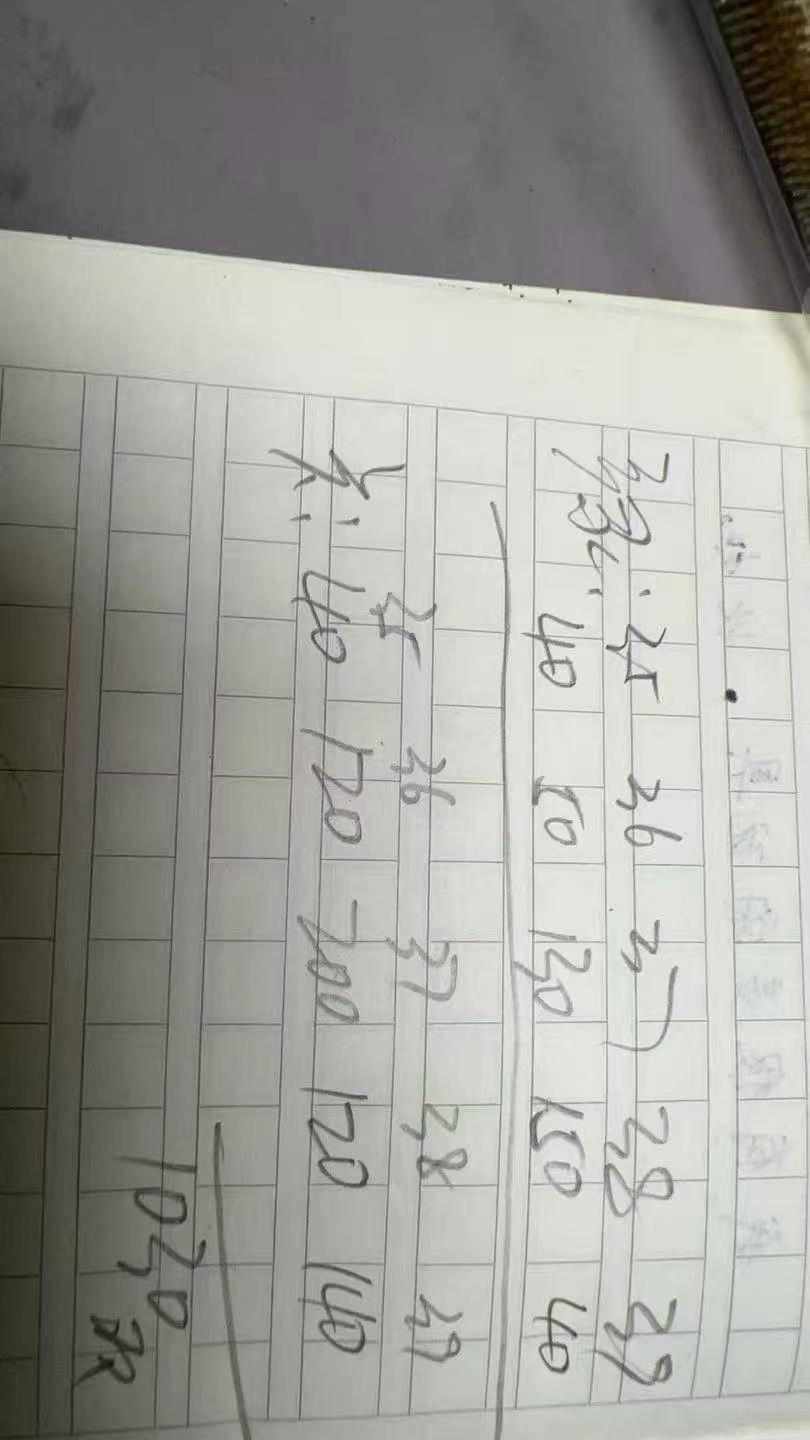 35 36 37 38 39
40 50 130 150 40
35 36 37 38 39
40 120 200 120 140
1030双